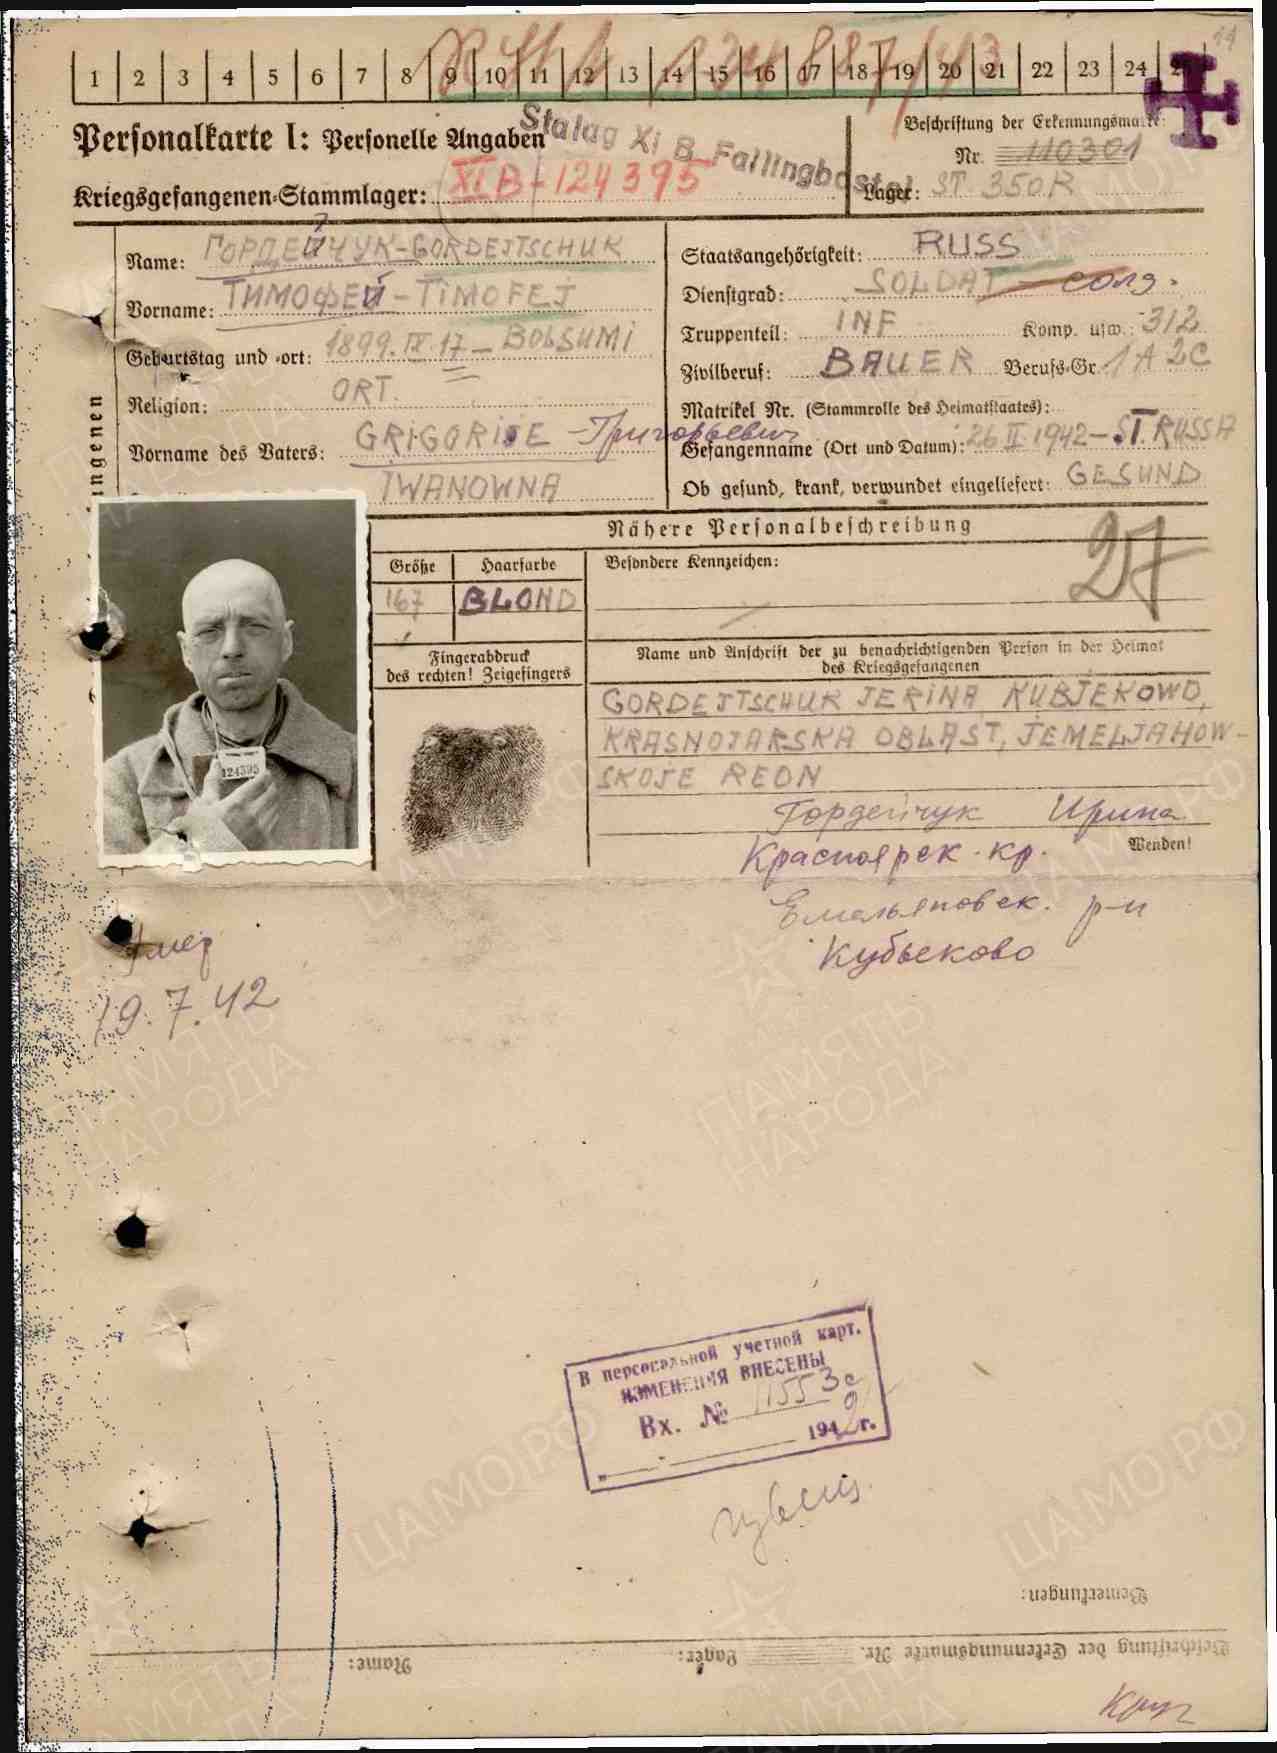 1 2 3 4 5 6 7 8 9 10 11 12 13 14 15 16 17 18 19 20 21 22 23 24
Personalkarte I: Personelle Angaben
Stalag XI B Fallingbostel
Beschriftung der Erkennungsmarke:
Nr. 110301
Kriegsgefangenen-Stammlager: XI B - 124395
Lager: ST 350 R
Name: ГОРДЕЙЧУК-GORDEJTSCHUK
Vorname: ТИМОФЕЙ-TIMOFEJ
Geburtstag und -ort: 1899.IX.17 - BOLSUMI
Religion: ORT.
Vorname des Vaters: GRIGORIJE - Григорьевич
IWANOWNA
Staatsangehörigkeit: RUSS
Dienstgrad: SOLDAT - солд.
Truppenteil: INF Komp. usw.: 312
Zivilberuf: BAUER Berufs-Gr. 1 A 2C
Matrikel Nr. (Stammrolle des Heimatstaates):
Gefangenname (Ort und Datum): 26 II 1942 - ST. RUSSA
Ob gesund, krank, verwundet eingeliefert: GESUND
ngenen
Nähere Personalbeschreibung
Größe Haarfarbe Besondere Kennzeichen:
167 BLOND
27
Fingerabdruck
des rechten! Zeigefingers
Name und Anschrift der zu benachrichtigenden Person in der Heimat
des Kriegsgefangenen
GORDEJTSCHUK JERINA, KUBJEKOWO,
KRASNOJARSKA OBLAST, JEMELJANOW-
SKOJE REON
124395
Гордейчук Ирина
Wenden!
Красноярск. кр.
Емельяновск. р-н
Кубеково
Умер
19.7.42
В персональной учетной карт.
ИЗМЕНЕНИЯ ВНЕСЕНЫ
Вх. № 11553с
1942 г.
Bemerkungen:
Name: Lager: Beschriftung der Erkennungsmarke Nr.
ПАМЯТЬ НАРОДА
ЦАМО.РФ